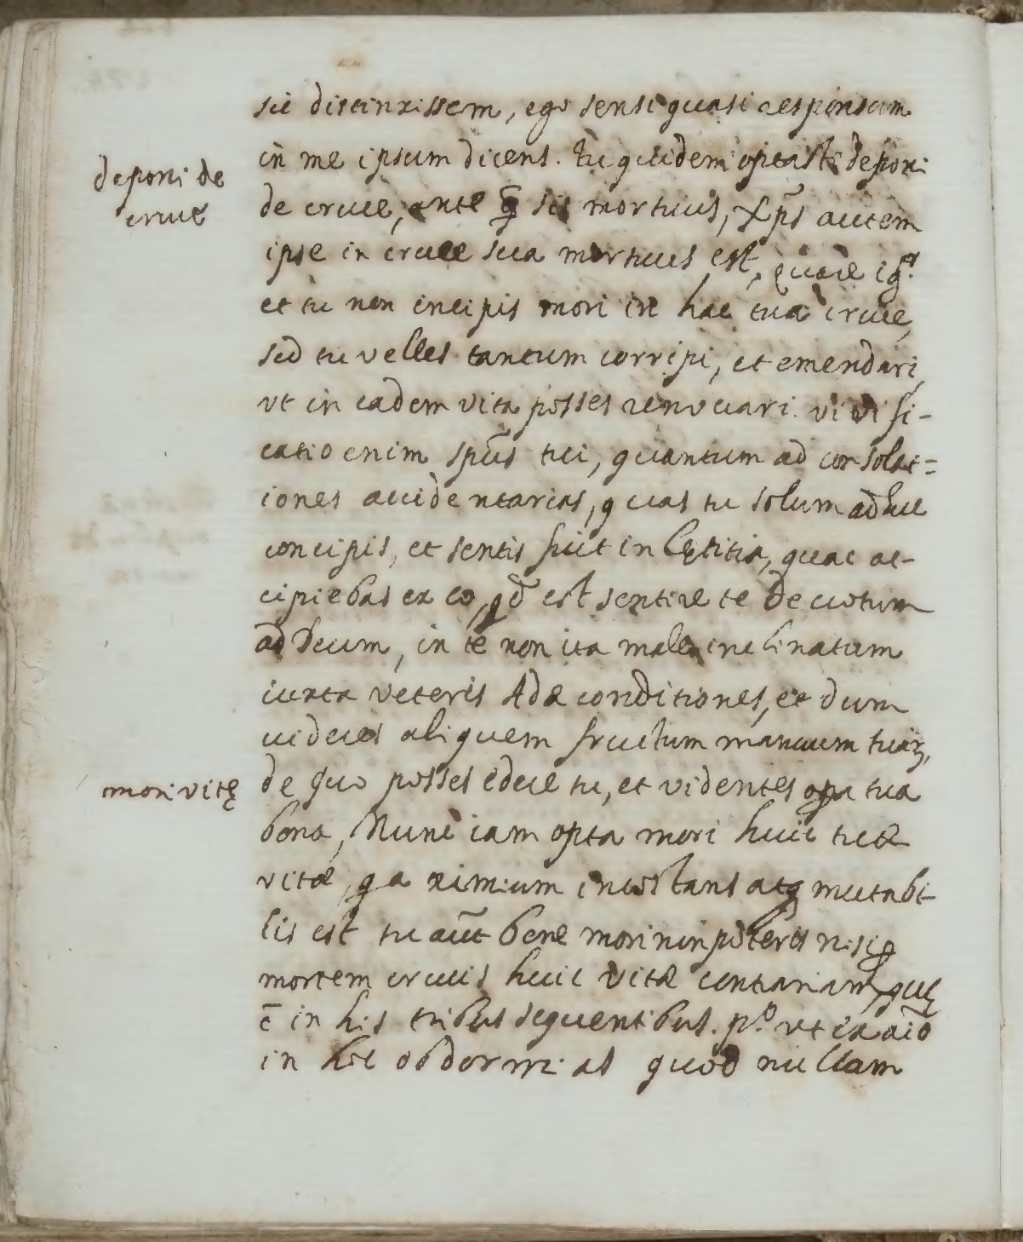 sic distinxissem, ego sensi quasi responsum
in me ipsum dicens. Tu quidem optasti deponi
deponi de
cruce
de cruce, ante q̃ sis mortuus, Xp̃s autem
ipse in cruce sua mortuus est, quare igr.
et tu non incipis mori in hac tua cruce,
sed tu velles tantum corripi, et emendari,
vt in eadem vita posses renouari. viuifi-
catio enim sp̃us tui, quantum ad consolat=
iones accidentarias, quas tu solum adhuc
concipis, et sentis fuit in lętitia, quae ac-
cipiebas ex eo, qd̃ est sentire te deuotum
ad Deum, in te non ita male inclinatum
iuxta veteris Adæ conditiones, et dum
uideres aliquem fructum manuum tuaꝝ,
mori vitę
de quo posses edere tu, et videntes opa tua
bona, Nunc iam opta mori huic tuæ
vitæ, qa nimium inconstans atq mutabi-
lis est tu aut̃ bene mori non poteris nisi ꝑ
mortem crucis huic vitæ contrariam, quę
ē in his tribus sequentibus. p.º vt ex aīo
in hoc obdormias quod nullam